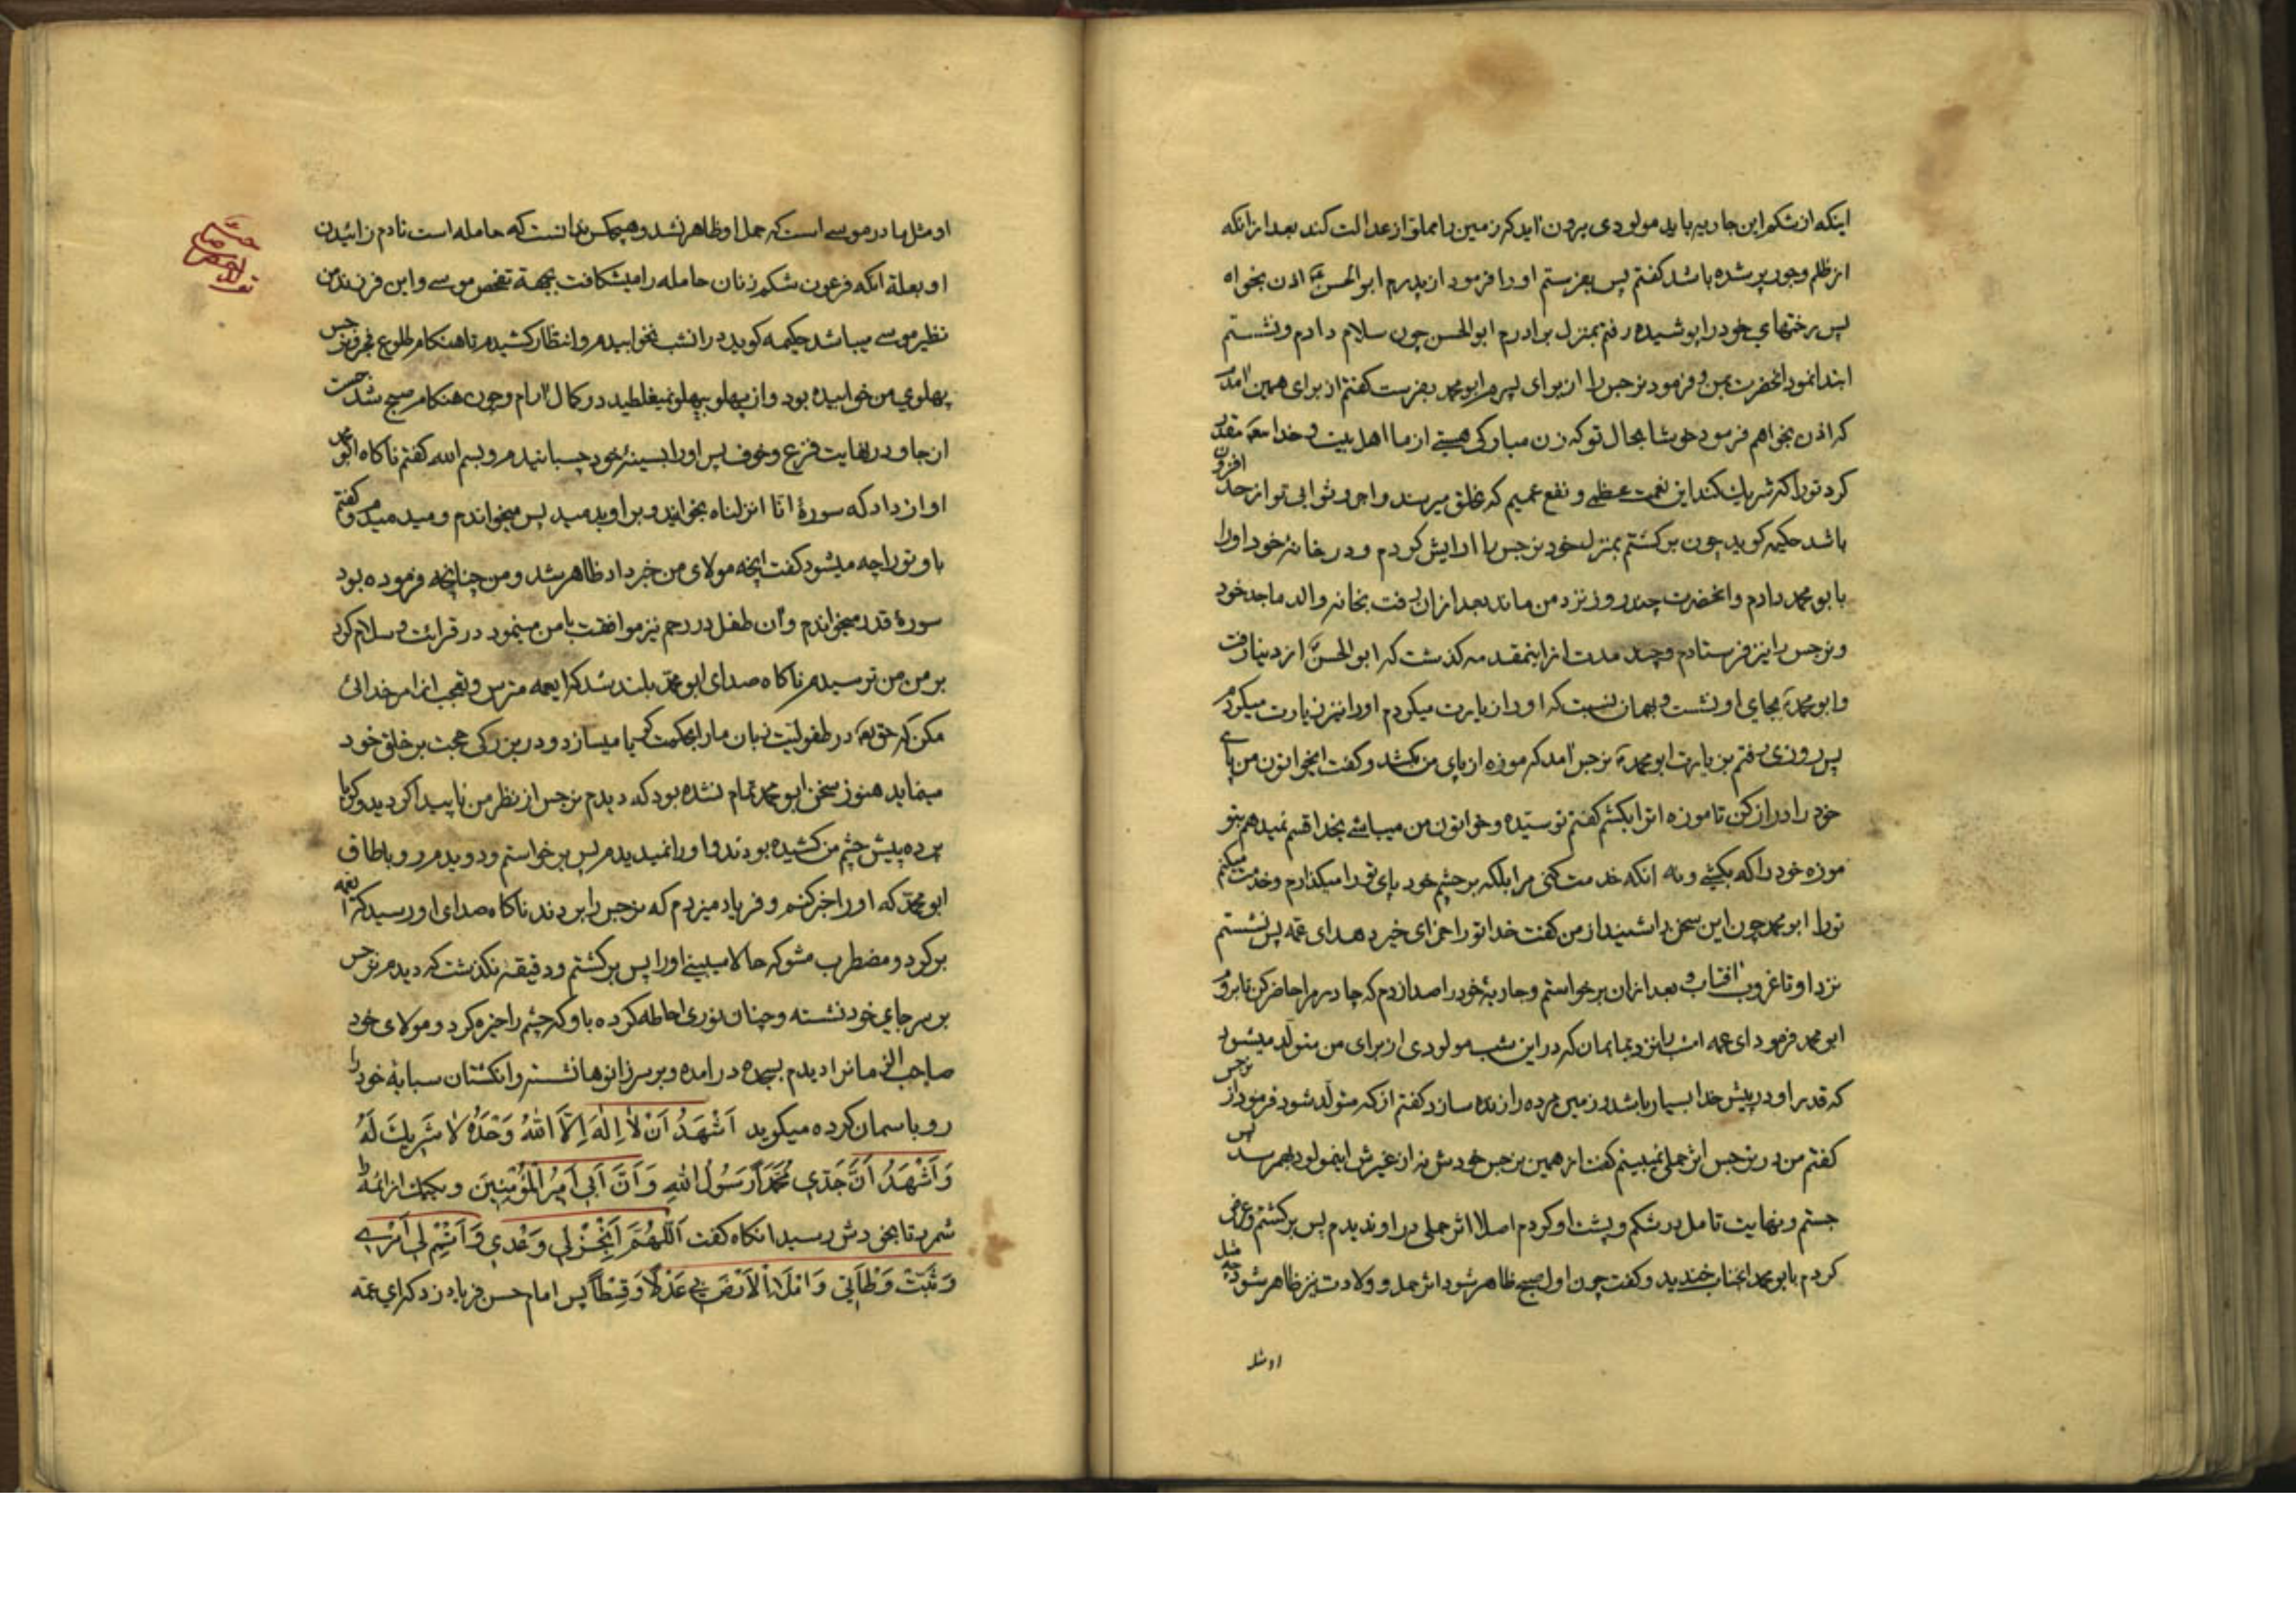 اینکه از شکم این جاریه باید مولودی بیرون آید که زمین را مملو از عدالت کند بعد از آنکه
از ظلم وجور پر شده باشد کفتم پس بفرستم او را فرمود از پدرم ابو الحسن اذن بخواه
پس رختهای خود را پوشیده رفتم بمنزل برادرم ابو الحسن چون سلام دادم و نشستم
ابتدا نمود آنحضرت بمن و فرمود نرجس را از برای پسرم ابو محمد بفرست کفتم از برای همین آمدم
که اذن بخواهم فرمود خوشا بحال تو که زن مبارکی هستی از ما اهل بیت و خدا مقدر
کرد تو را که شریک کند این نعمت عظمی و نفع عمیم که بخلق میرسد و اجر و ثوابی تو از حد افزون
باشد حکیمه کوید چون برکشتم بمنزل خود نرجس را آرایش کردم و در خانه خود او را
بابو محمد دادم و آنحضرت چند روز نزد من ماند بعد از آن رفت بخانه والد ماجد خود
و نرجس را نیز فرستادم و چند مدت از اینمقدمه کذشت که ابو الحسن از دنیا رفت
و ابو محمد بجای او نشست و بهمان نسبت که او را زیارت میکردم او را نیز زیارت میکردم
پس روزی رفتم بزیارت ابو محمد نرجس آمد که موزه از پای من بکشد و کفت ایخواتون من پای
خود را دراز کن تا موزه اترا بکشم کفتم تو سیده و خواتون من میباشی بخدا قسم نمیدهم بتو
موزه خود را که بکشی و نه آنکه خدمت کنی مرا بلکه بر چشم خود پای تو را میکذارم و خدمت میکنم
تو را ابو محمد چون این سخن را شنید از من کفت خدا تو را جزای خیر دهد ای عمه پس نشستم
نزد او تا غروب آفتاب و بعد از آن برخواستم و جاریه خود را صدا زدم که چادر مرا حاضر کن تا بروم
ابو محمد فرمود ای عمه امشب را نزد ما بمان که در این شب مولودی از برای من متولد میشود
که قدر او در پیش خدا بسیار باشد و زمین مرده را زنده سازد کفتم از که متولد شود فرمود از نرجس
کفتم من در نرجس اثر حملی نمیبینم کفت از همین نرجس خودش نه از غیرش اینمولود بهمرسد پس
جستم و نهایت تامل در شکم و پشت او کردم اصلا اثر حملی در او ندیدم پس برکشتم و عرض
کردم بابو محمد آنجناب خندید و کفت چون اول صبح ظاهر شود اثر حمل و ولادت نیز ظاهر شود چه مثل
او مثل
او مثل مادر موسی است که حمل او ظاهر نشد و هیچکس ندانست که حامله است تا دم زائیدن
او بعلة آنکه فرعون شکم زنان حامله را میشکافت بجهة تفحص موسی و این فرزند من
نظیر موسی میباشد حکیمه کوید در آنشب نخوابیدم و انتظار کشیدم تا هنکام طلوع فجر و نرجس
پهلوی من خوابیده بود و از پهلو بپهلو نمیغلطید در کمال آرام و چون هنکام صبح شد جست
از جا و در نهایت فزع و خوف پس او را بسینهٔ خود چسبانیدم و بسم الله کفتم ناکاه ابو محمد
آواز داد که سورهٔ انّا انزلناه بخوانید و بر او بدمید پس میخواندم و میدمیدم و کفتم
باو تو را چه میشود کفت آنچه مولای من خبر داد ظاهر شد و من چنانچه فرموده بود
سورهٔ قدر میخواندم و آن طفل در رحم نیز موافقت با من مینمود در قرائت و سلام کرد
بر من من ترسیدم ناکاه صدای ابو محمد بلند شد که ایعمه مترس و تعجب از امر خدائی
مکن که حق در طفولیت زبان ما را بحکمت کویا میسازد و در بزرکی حجت بر خلق خود
مینماید هنوز سخن ابو محمد تمام نشده بود که دیدم نرجس از نظر من ناپیدا کردید و کویا
پرده پیش چشم من کشیده بودند و او را نمیدیدم پس برخواستم و دویدم رو باطاق
ابو محمد که او را خبر کنم و فریاد میزدم که نرجس را بردند ناکاه صدای او رسید که ایعمه
برکرد و مضطرب مشو که حالا میبینی او را پس برکشتم و دقیقه نکذشت که دیدم نرجس
بر سر جای خود نشسته و چنان نوری احاطه کرده باو که چشم را خیره کرد و مولای خود
صاحب الزمانرا دیدم بسجده در آمده و بر سر زانوها نشسته و انکشتان سبابهٔ خود را
رو باسمان کرده میکوید اَشْهَدُ اَنْ لاٰ اِلٰهَ اِلَّا اللهُ وَحْدَهُ لاٰ شَرِیكَ لَهُ
وَاَشْهَدُ اَنَّ جَدّي مُحَمَّداً رَسُولُ اللهِ وَ اَنَّ اَبي اَمیرُ الْمُؤْمِنینَ و یکیک از ائمه را
شمرد تا بخودش رسید آنکاه کفت اَللّٰهُمَّ اَنْجِزْ لي وَعْدي وَ اَتْمِمْ لي اَمْري
وَ ثَبِّتْ وَطْأَتي وَ امْلَأِ الْاَرْضَ بي عَدْلًا وَ قِسْطاً پس امام حسن فریاد زد که ای عمّه